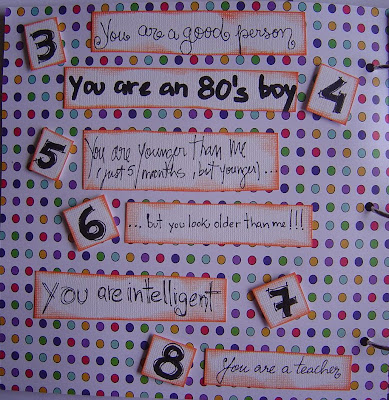 3 You are a good person
You are an 80's boy 4
5 You are younger than me
, just 5 months , but younger)...
6 ... but you look older than me!!!
You are intelligent 7
8 You are a teacher